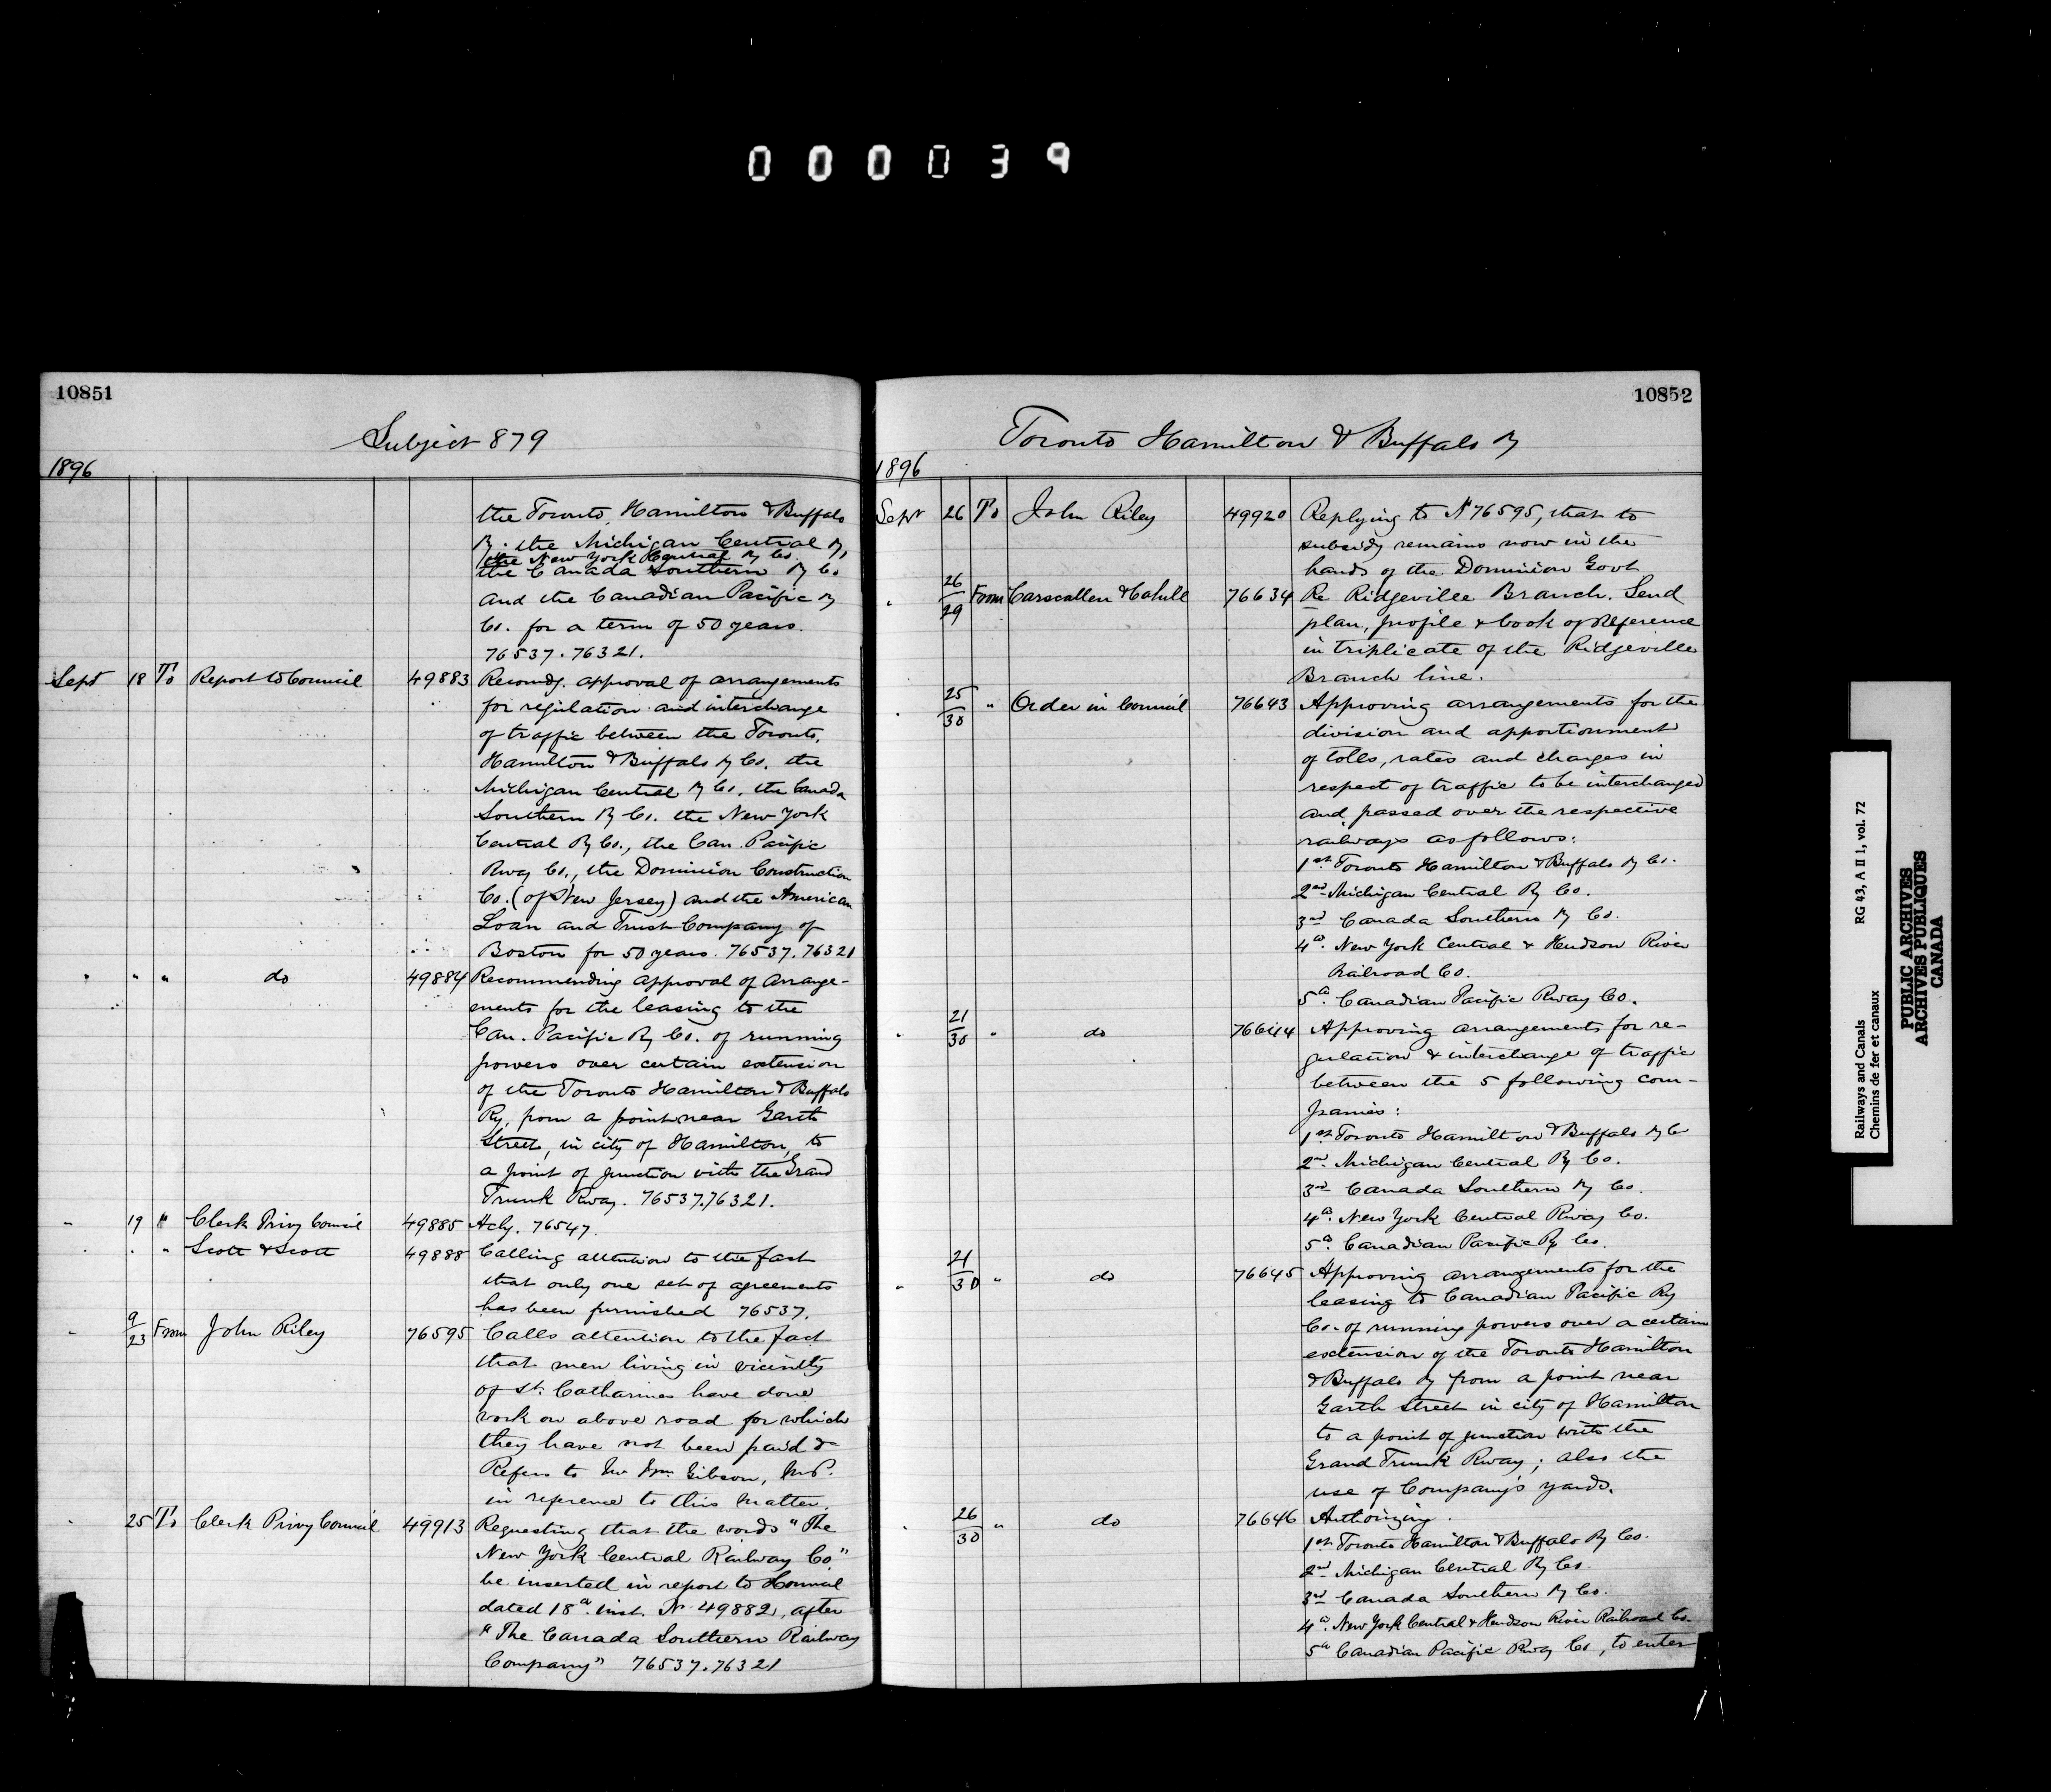 000039
10851
Subject 879
1896
the Toronto, Hamilton & Buffalo
Ry. the Michigan Central Ry,
the New York Central Ry Co.
the Canada Southern Ry Co
and the Canadian Pacific Ry
Co. for a term of 50 years.
76537. 76321.
Sept 18 To Report to Council 49883 Recomdg. approval of arrangements
for regulation and interchange
of traffic between the Toronto,
Hamilton & Buffalo Ry Co. the
Michigan Central Ry Co. the Canada
Southern Ry Co. the New York
Central Ry Co., the Can. Pacific
Rway Co., the Dominion Construction
Co. (of New Jersey) and the American
Loan and Trust Company of
Boston for 50 years. 76537. 76321
" " " do 49884 Recommending approval of arrange-
ments for the leasing to the
Can. Pacific Ry Co. of running
powers over certain extension
of the Toronto Hamilton & Buffalo
Ry, from a point near Garth
Street, in city of Hamilton, to
a point of junction with the Grand
Trunk Rway. 76537.76321.
" 19 " Clerk Privy Council 49885 Ackg. 76547.
" " " Scott & Scott 49888 Calling attention to the fact
that only one set of agreements
has been furnished 76537.
" 9/23 From John Riley 76595 Calls attention to the fact
that men living in vicinity
of St. Catharines have done
work on above road for which
they have not been paid &
Refers to Mr Wm Gibson, M.P.
in reference to this matter.
" 25 To Clerk Privy Council 49913 Requesting that the words "The
New York Central Railway Co"
be inserted in report to Council
dated 18th inst. No 49882, after
"The Canada Southern Railway
Company" 76537.76321
10852
Toronto Hamilton & Buffalo Ry
1896
Sept 26 To John Riley 49920 Replying to No 76595, that to
subsidy remains now in the
hands of the Dominion Govt
" 26/29 From Carscallen & Cahill 76634 Re Ridgeville Branch. Send
plan, profile & book of Reference
in triplicate of the Ridgeville
Branch line.
" 25/30 " Order in Council 76643 Approving arrangements for the
division and apportionment
of tolls, rates and charges in
respect of traffic to be interchanged
and passed over the respective
railways as follows:
1st Toronto Hamilton & Buffalo Ry Co.
2nd Michigan Central Ry Co.
3rd Canada Southern Ry Co.
4th. New York Central & Hudson River
Railroad Co.
5th. Canadian Pacific Rway Co.
" 21/30 " do 76644 Approving arrangements for re-
gulation & interchange of traffic
between the 5 following com-
panies:
1st Toronto Hamilton & Buffalo Ry Co
2nd. Michigan Central Ry Co.
3rd Canada Southern Ry Co.
4th. New York Central Rway Co.
5th. Canadian Pacific Ry Co.
" 21/30 " do 76645 Approving arrangements for the
leasing to Canadian Pacific Ry
Co. of running powers over a certain
extension of the Toronto Hamilton
& Buffalo Ry from a point near
Garth Street in city of Hamilton
to a point of junction with the
Grand Trunk Rway; also the
use of Company's yards.
" 26/30 " do 76646 Authorizing.
1st Toronto Hamilton & Buffalo Ry Co.
2nd Michigan Central Ry Co.
3rd Canada Southern Ry Co.
4th. New York Central & Hudson River Railroad Co.
5th Canadian Pacific Rway Co, to enter
Railways and Canals RG 43, A II 1, vol. 72
Chemins de fer et canaux
PUBLIC ARCHIVES
ARCHIVES PUBLIQUES
CANADA